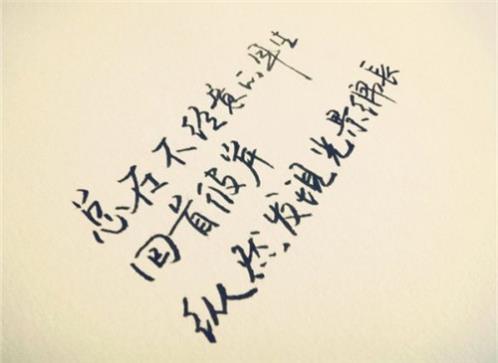 总在不经贵的年生
回首彼岸
纵然发现光景绵長